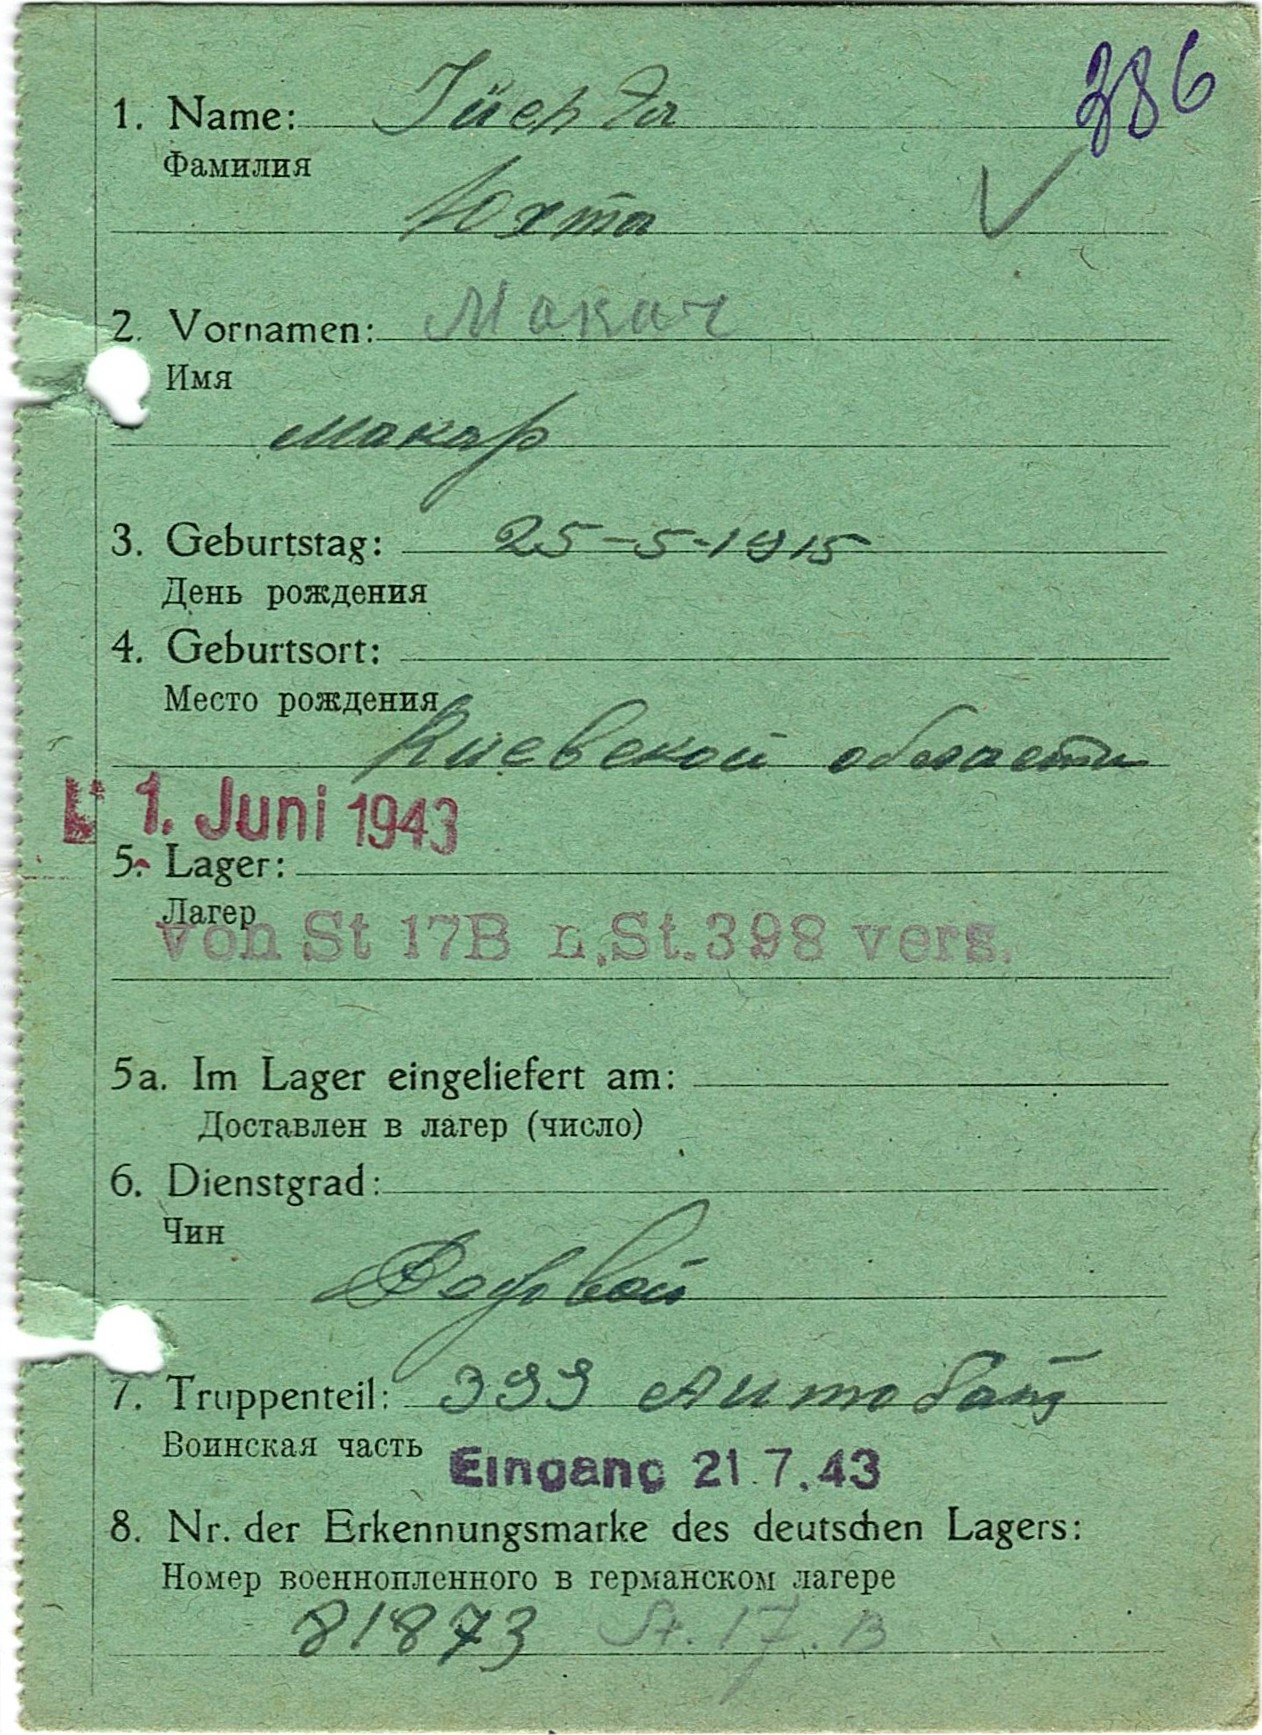 386
1. Name: Jüchta
Фамилия
Юхта
2. Vornamen: Макаr
Имя
Макар
3. Geburtstag: 25-5-1915
День рождения
4. Geburtsort:
Место рождения
Киевской области
1. Juni 1943
5. Lager:
Лагер
von St 17B n. St. 398 vers.
5a. Im Lager eingeliefert am:
Доставлен в лагер (число)
6. Dienstgrad:
Чин
7. Truppenteil: 399
Воинская часть
Eingang 21.7.43
8. Nr. der Erkennungsmarke des deutschen Lagers:
Номер военнопленного в германском лагере
81873 St. 17. B